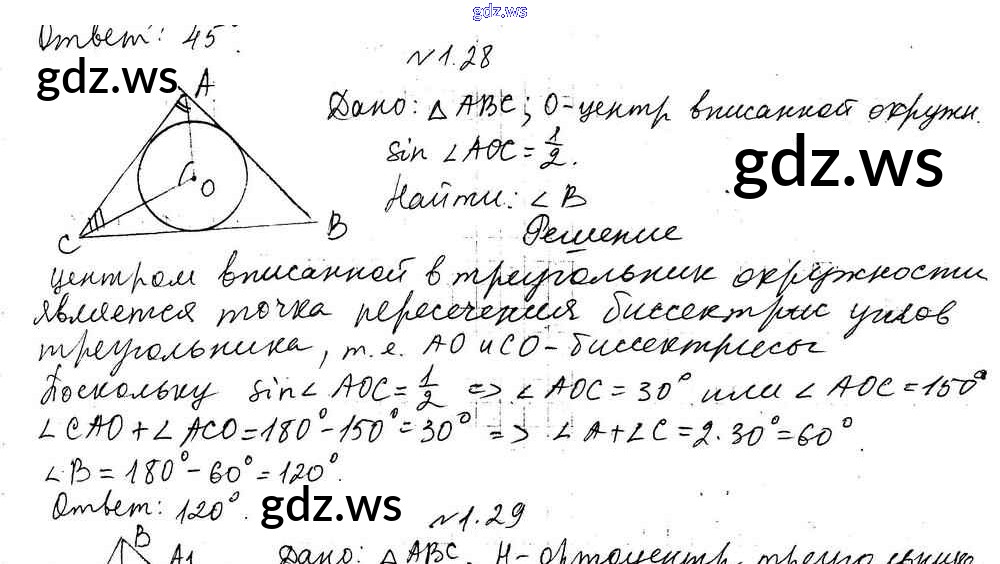 gdz.ws
Ответ: 45°.
№1.28
gdz.ws
A
Дано: △ABC; O-центр вписанной окружн.
sin ∠AOC = 1/2.
gdz.ws
Найти: ∠B
O
B
C
Решение
Центром вписанной в треугольник окружности
является точка пересечения биссектрис углов
треугольника, т.е. AO и CO - биссектрисы
Поскольку sin∠AOC = 1/2 => ∠AOC = 30° или ∠AOC = 150°
∠CAO + ∠ACO = 180° - 150° = 30° => ∠A + ∠C = 2·30° = 60°.
∠B = 180° - 60° = 120°.
Ответ: 120°.
gdz.ws
№1.29
B
A1
Дано: △ABC, H - ортоцентр